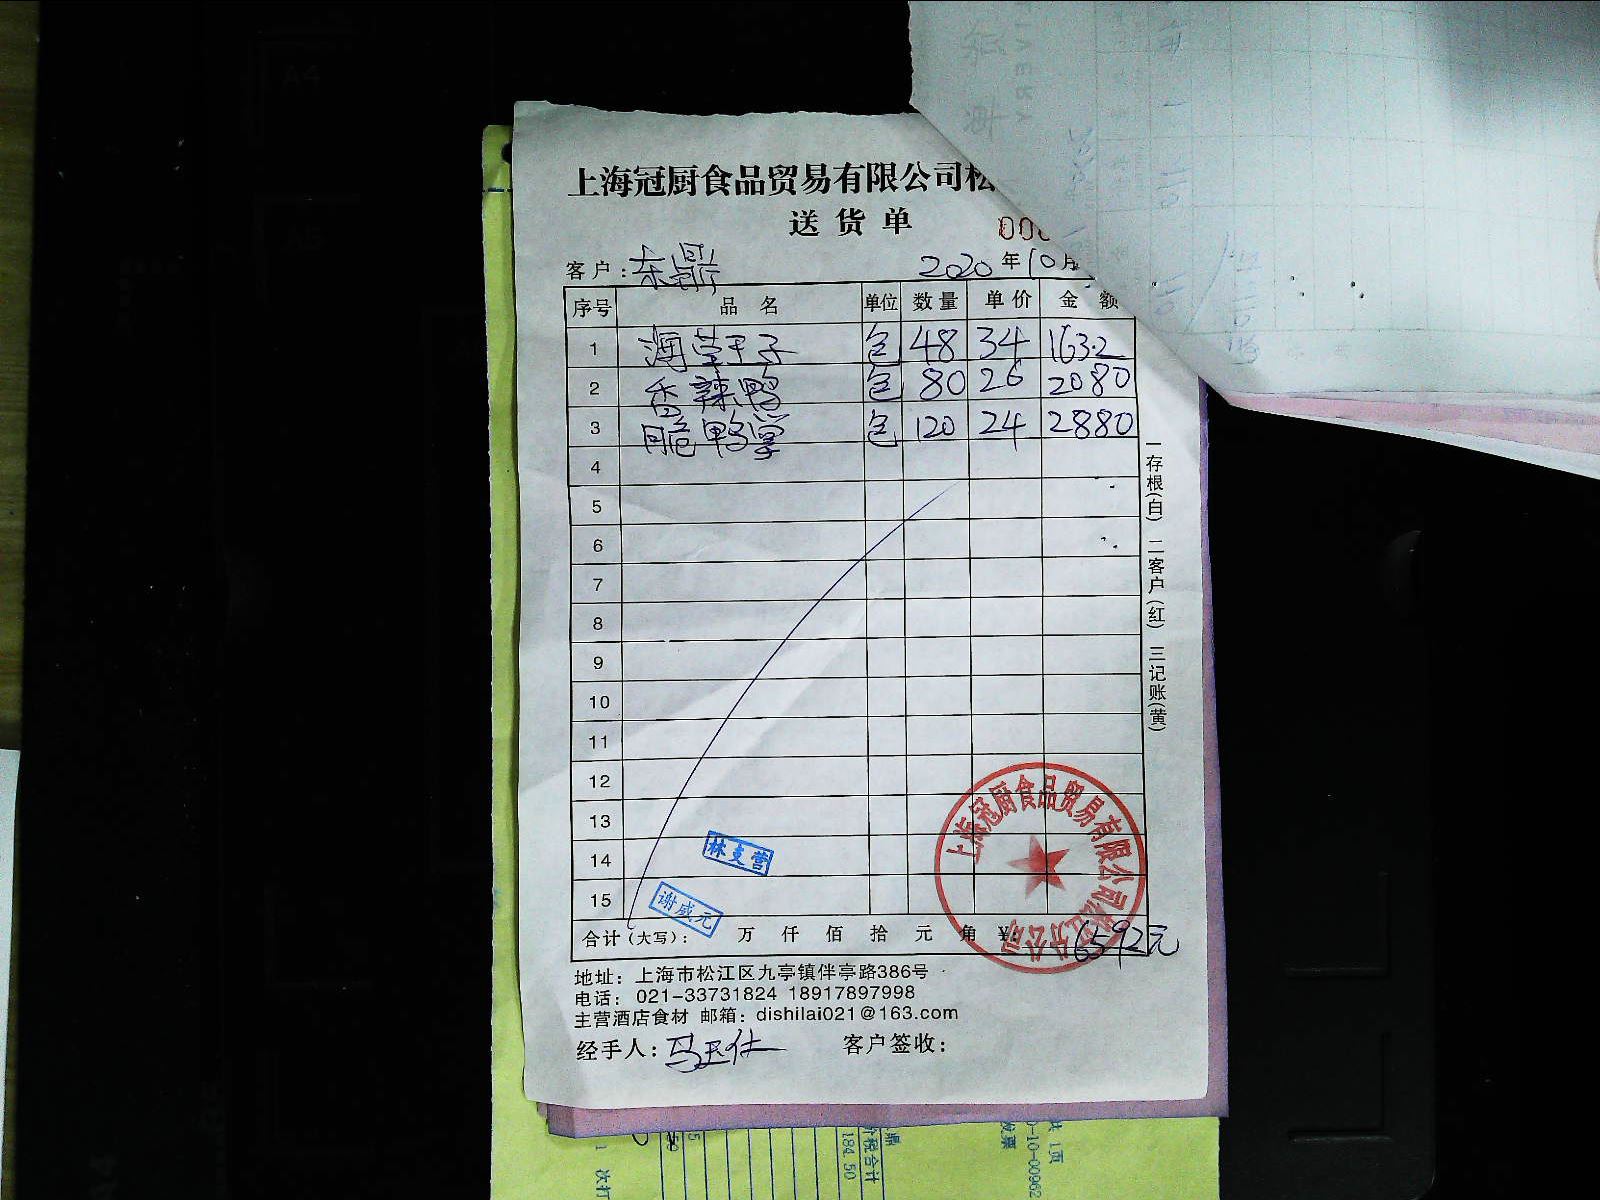 上海冠厨食品贸易有限公司松
送货单
000
客户:东鼎
2020年10月
序号 品名 单位 数量 单价 金额
1 海草干子 包 48 34 1632
2 香辣鸭 包 80 26 2080
3 脆鸭掌 包 120 24 2880
4
5
6
7
8
9
10
11
12
13
14
15
林支营
谢咸元
合计(大写): 万 仟 佰 拾 元 角 ¥: 6592元
上海冠厨食品贸易有限公司松江分公司
一存根(白) 二客户(红) 三记账(黄)
地址: 上海市松江区九亭镇伴亭路386号
电话: 021-33731824 18917897998
主营酒店食材 邮箱: dishilai021@163.com
经手人: 马玉仕 客户签收:
价税合计
184.50
发票
共1页
0-10-00962
1 次打
A4
A5